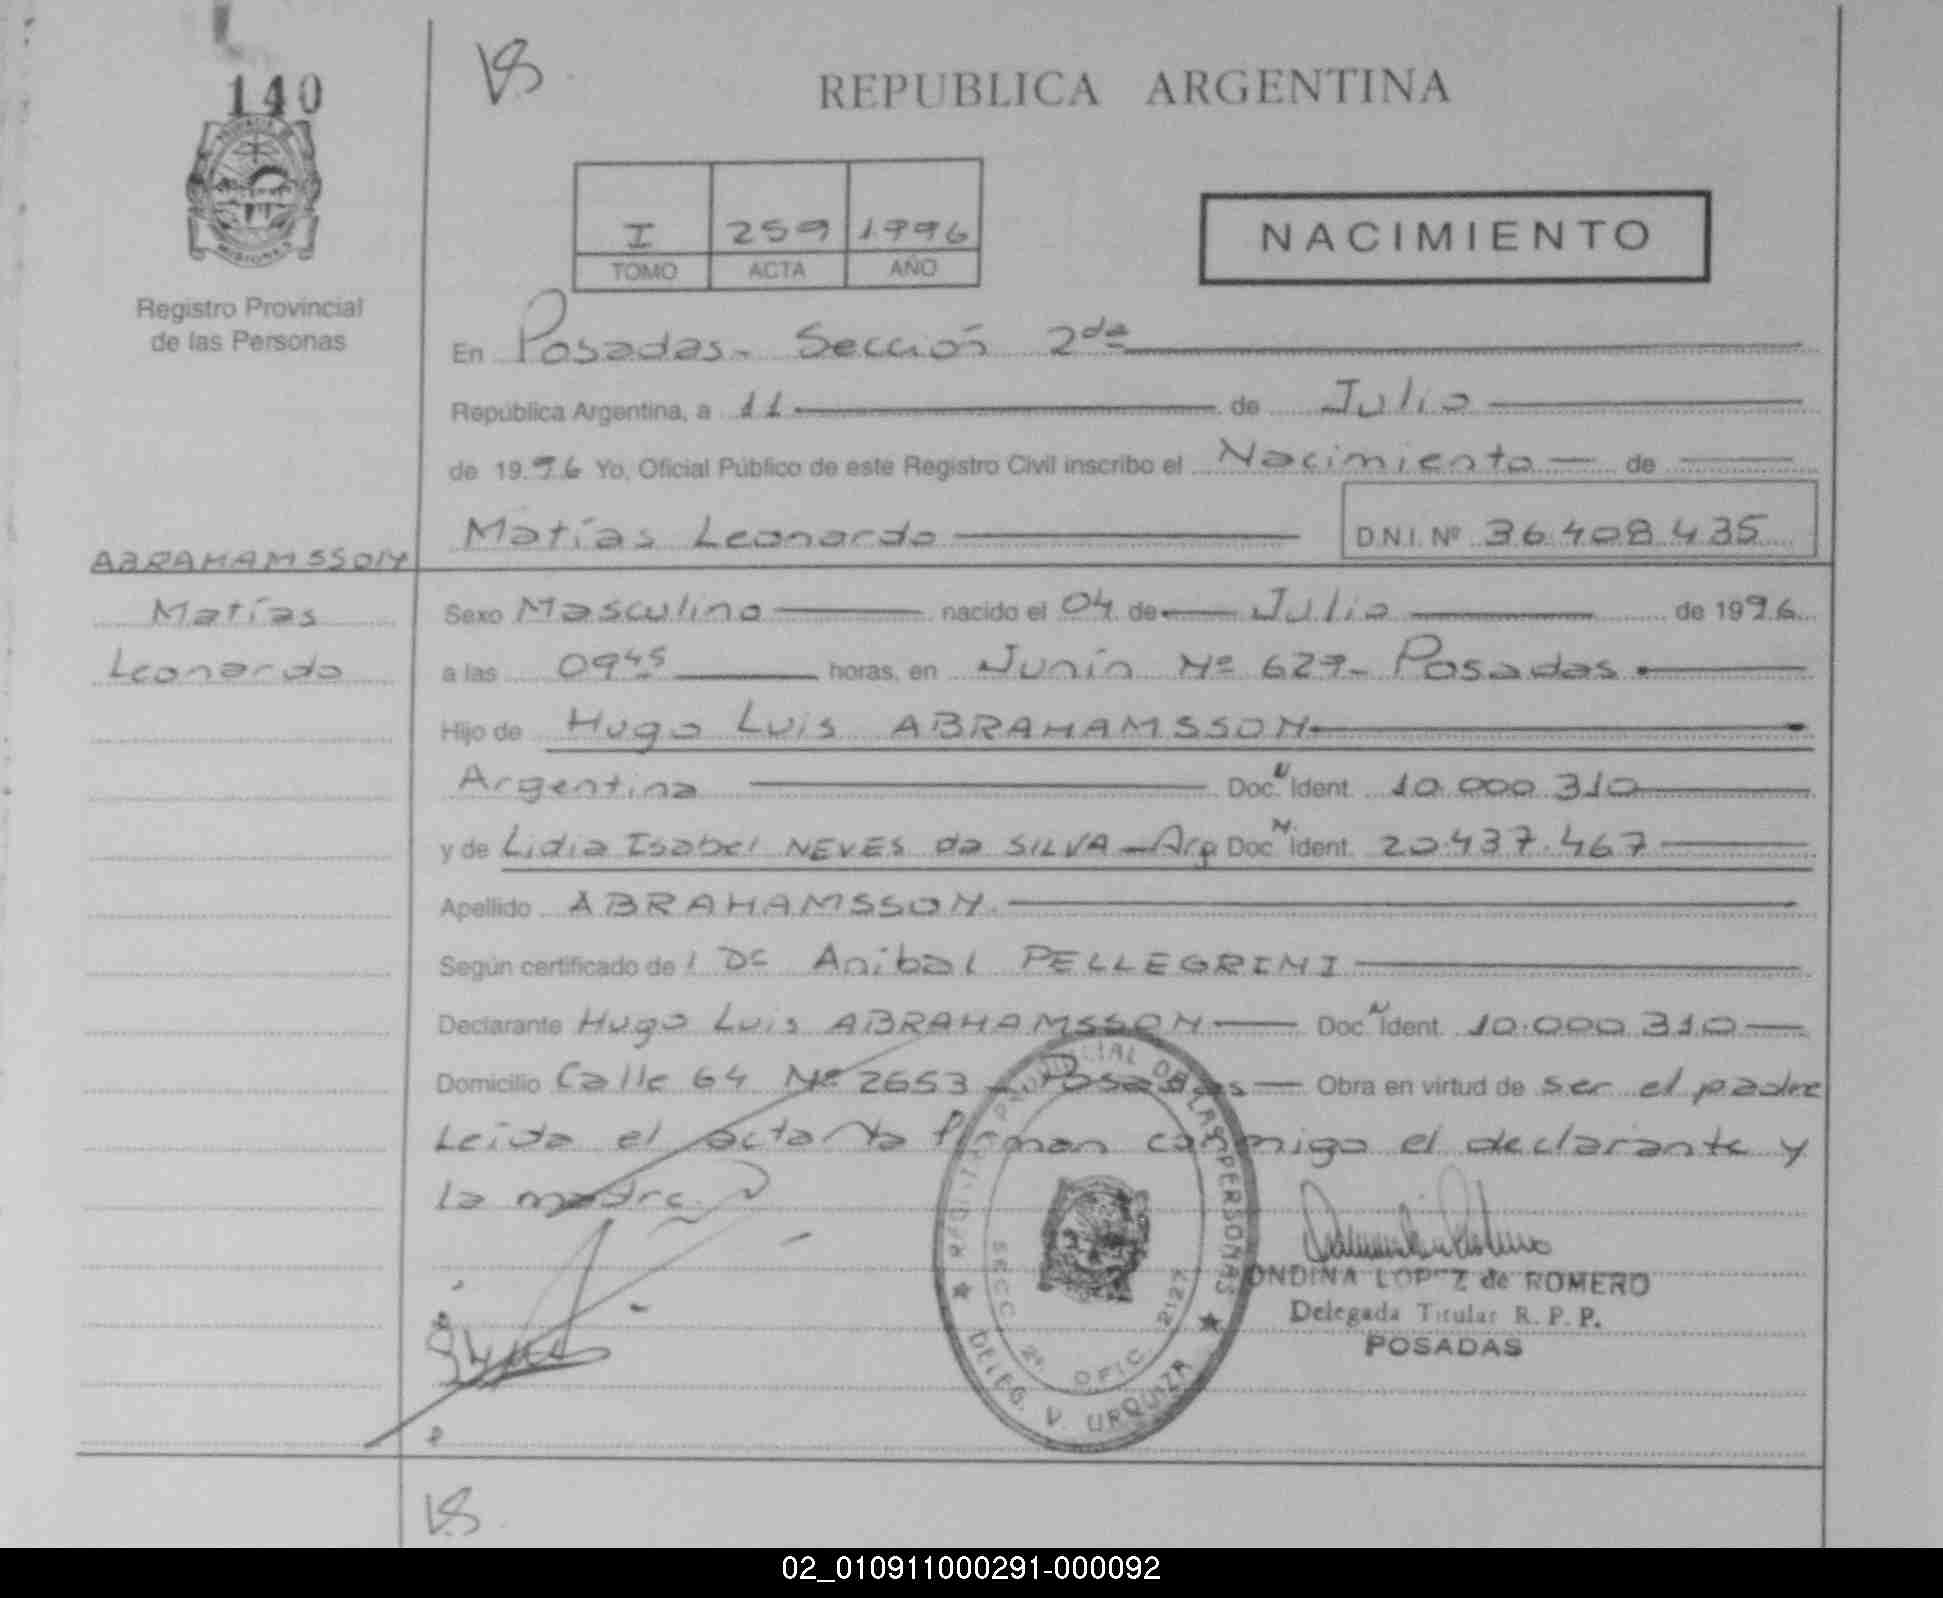 140
VS
REPUBLICA ARGENTINA
PROVINCIA DE
MISIONES
I 259 1996
TOMO ACTA AÑO
NACIMIENTO
Registro Provincial
de las Personas
En Posadas - Sección 2da
República Argentina, a 11 de Julio
de 1996 Yo, Oficial Público de este Registro Civil inscribo el Nacimiento de
Matías Leonardo D.N.I. Nº 36.408.435
ABRAHAMSSON
Matías
Leonardo
Sexo Masculino nacido el 04 de Julio de 1996
a las 09 45 horas, en Junín Nº 627 - Posadas
Hijo de Hugo Luis ABRAHAMSSON
Argentina Doc. N Ident. 10.000.310
y de Lidia Isabel NEVES da SILVA - Arg Doc N Ident. 20.437.467
Apellido ABRAHAMSSON
Según certificado de Aníbal PELLEGRINI
Declarante Hugo Luis ABRAHAMSSON Doc N Ident. 10.000.310
Domicilio Calle 64 Nº 2653 - Posadas Obra en virtud de ser el padre
Leída el acta la firman conmigo el declarante y
la madre.
REGISTRO PROVINCIAL DE LAS PERSONAS
SECC. 2ª OFIC. 2127
DELEG. V. URQUIZA
ONDINA LOPEZ de ROMERO
Delegada Titular R. P. P.
POSADAS
VS
02_010911000291-000092